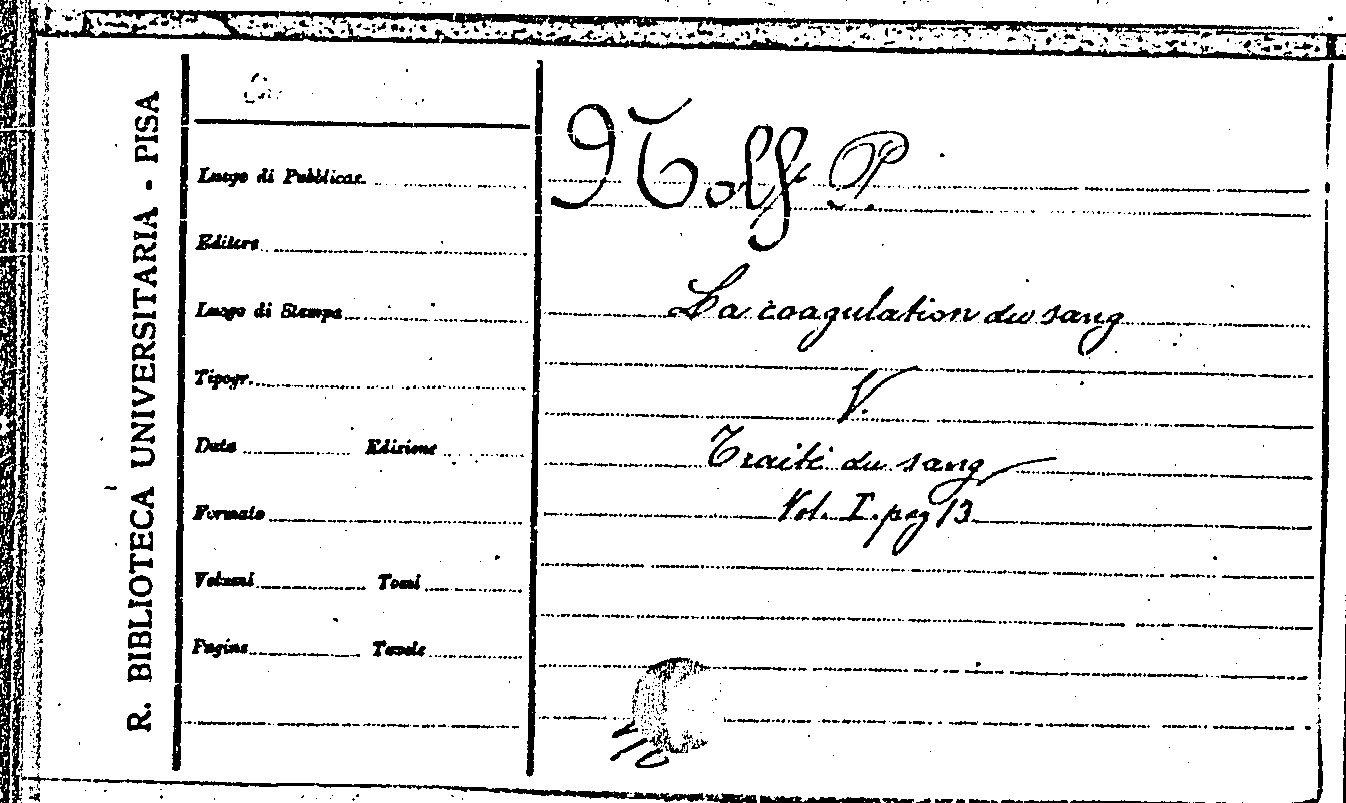 R. BIBLIOTECA UNIVERSITARIA - PISA
Luogo di Pubblicaz.
Editore
Luogo di Stampa
Tipogr.
Data Edizione
Formato
Volumi Tomi
Pagine Tavole
Nolf P.
La coagulation du sang
V.
Traité du sang
Vol. I. pag 13